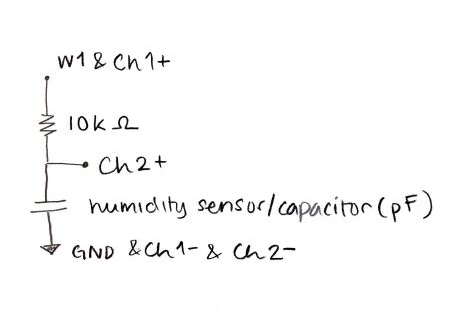 W1 & Ch1+
10k Ω
Ch2+
humidity sensor/capacitor (pF)
GND & Ch1- & Ch2-